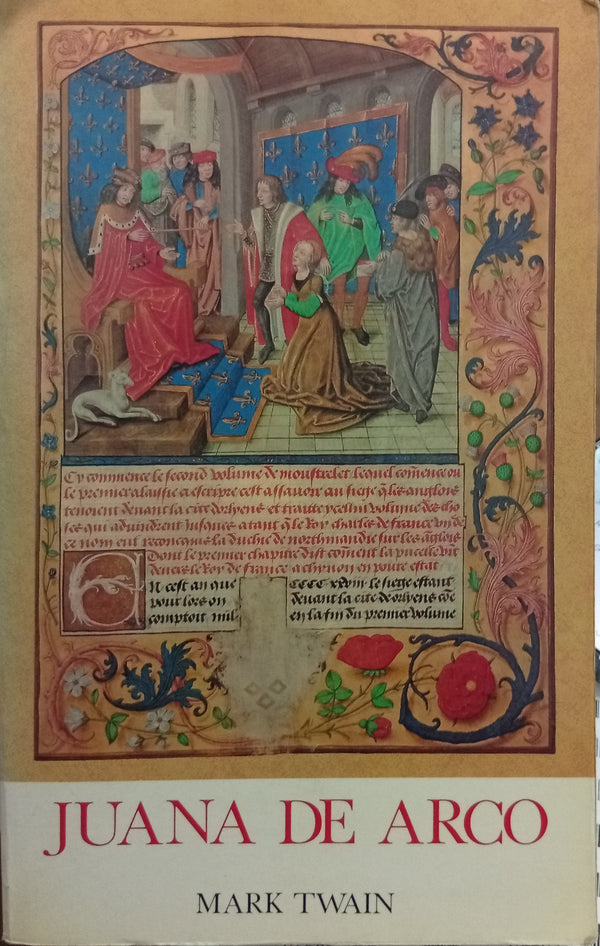 Cy commence le second volume de monstrelet lequel cõmence ou
le premier laisse a escripre cest assavoir au siege q̃ les anglois
tenoient devant la cite dorlyens et traicte ycellui volume des cho
ses qui advindrent jusques a tant q̃ le Roy charles de france vııe de
ce nom eut reconquis la duche de northmandie sur les ãglois
Dont le premier chapitre dist cõment la pucelle vint
devers le Roy de france a chynon en povre estat
En cest an que
pour lors on
comptoit mil
CCCC xxviii le siege estant
devant la cite de orlyens cõe
en la fin du premier volume
JUANA DE ARCO
MARK TWAIN